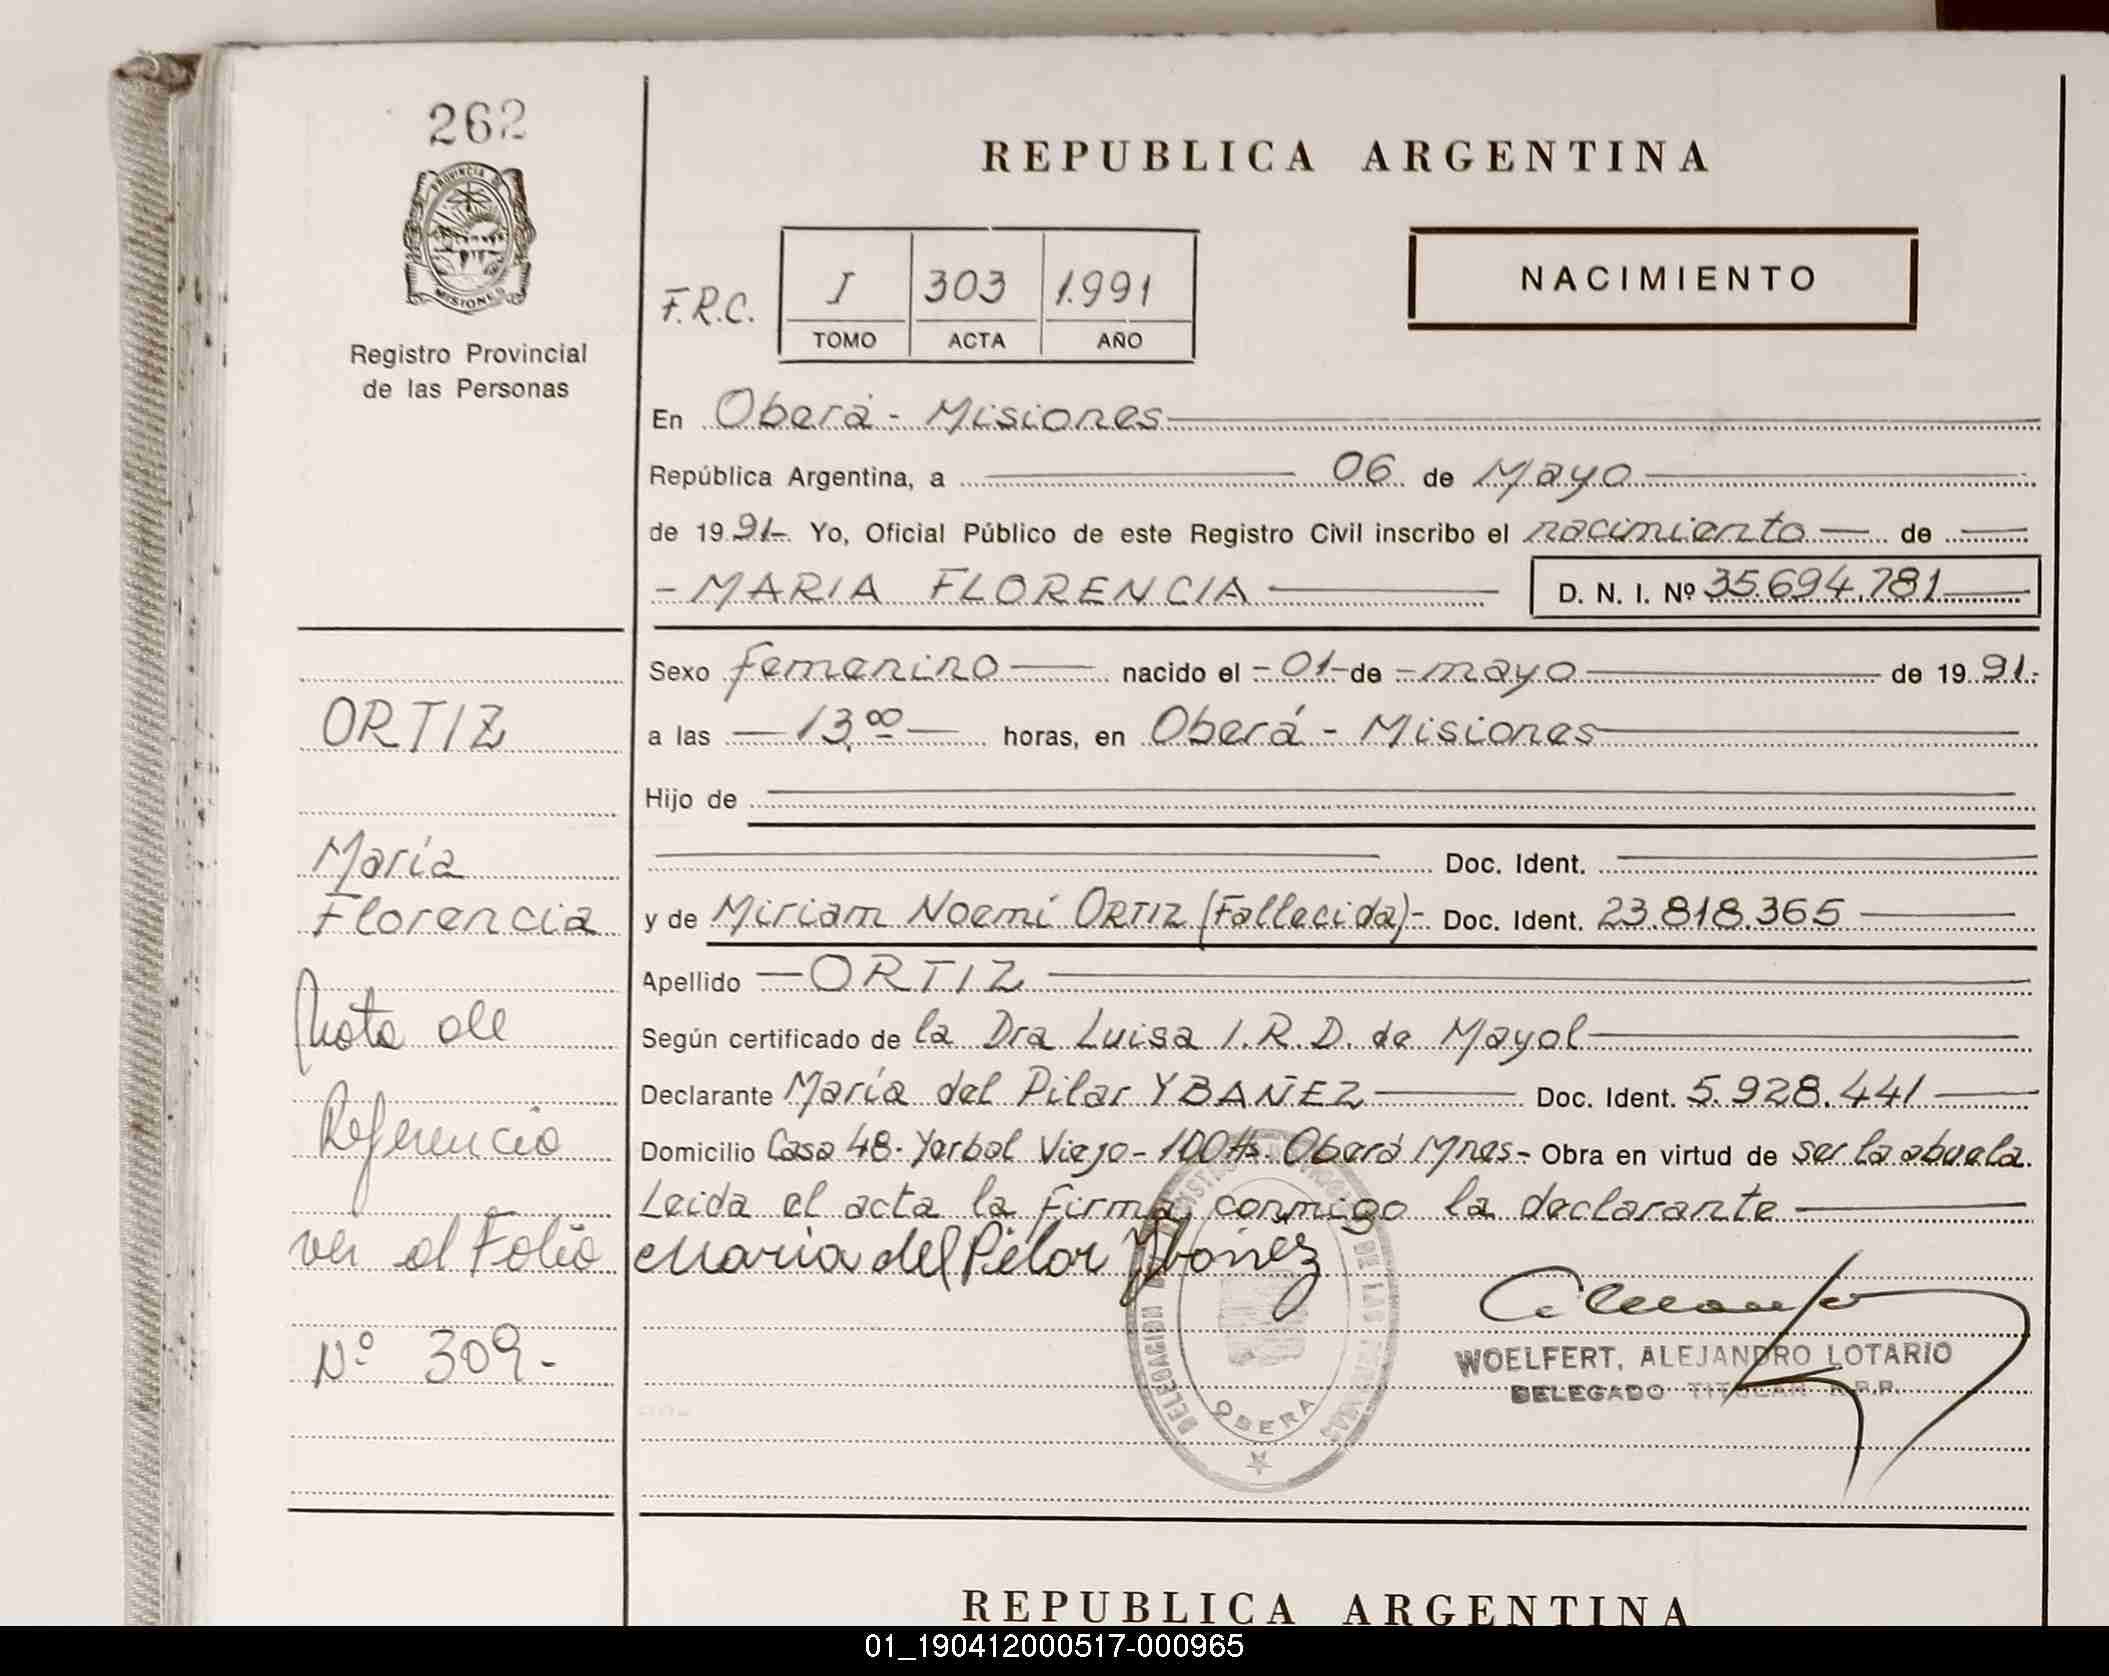 262
PROVINCIA DE
MISIONES
Registro Provincial
de las Personas
REPUBLICA ARGENTINA
NACIMIENTO
F.R.C.
I 303 1.991
TOMO ACTA AÑO
En Oberá - Misiones
República Argentina, a 06 de Mayo
de 1991- Yo, Oficial Público de este Registro Civil inscribo el nacimiento de
- MARIA FLORENCIA D. N. I. Nº 35.694.781
Sexo femenino nacido el - 01 - de - mayo de 1991.-
a las 13,00 horas, en Oberá - Misiones
Hijo de
Doc. Ident.
y de Miriam Noemí ORTIZ (Fallecida)- Doc. Ident. 23.818.365
Apellido - ORTIZ
Según certificado de la Dra Luisa I. R. D. de Mayol
Declarante María del Pilar YBAÑEZ Doc. Ident. 5.928.441
Domicilio Casa 48 - Yerbal Viejo - 100 Hs. Oberá Mnes - Obra en virtud de ser la abuela.
Leida el acta la firma conmigo la declarante
Maria del Pilar Ybañez
WOELFERT, ALEJANDRO LOTARIO
DELEGADO TITULAR R.P.P.
DELEGACION DE LAS PERSONAS
OBERA
ORTIZ
María
Florencia
Nota de
Referencia
ver al Folio
Nº 309.-
REPUBLICA ARGENTINA
01_190412000517-000965